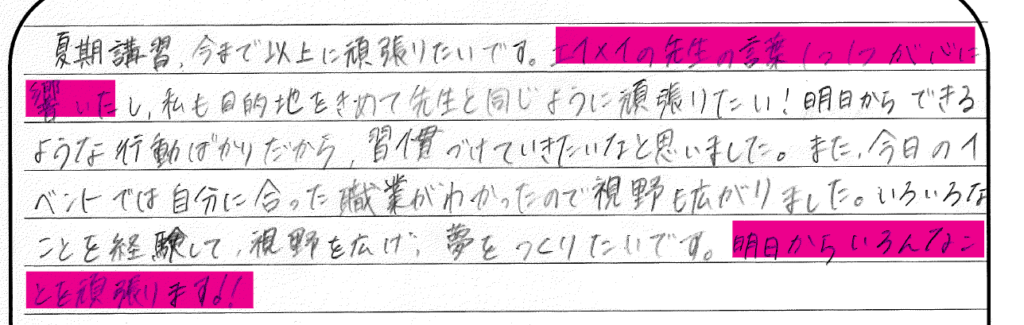 夏期講習、今まで以上に頑張りたいです。エイメイの先生の言葉1つ1つが心に
響いたし、私も目的地をきめて先生と同じように頑張りたい！明日からできる
ような行動ばかりだから、習慣づけていきたいなと思いました。また、今日のイ
ベントでは自分に合った職業がわかったので視野も広がりました。いろいろな
ことを経験して、視野を広げ、夢をつくりたいです。明日からいろんなこ
とを頑張ります!!